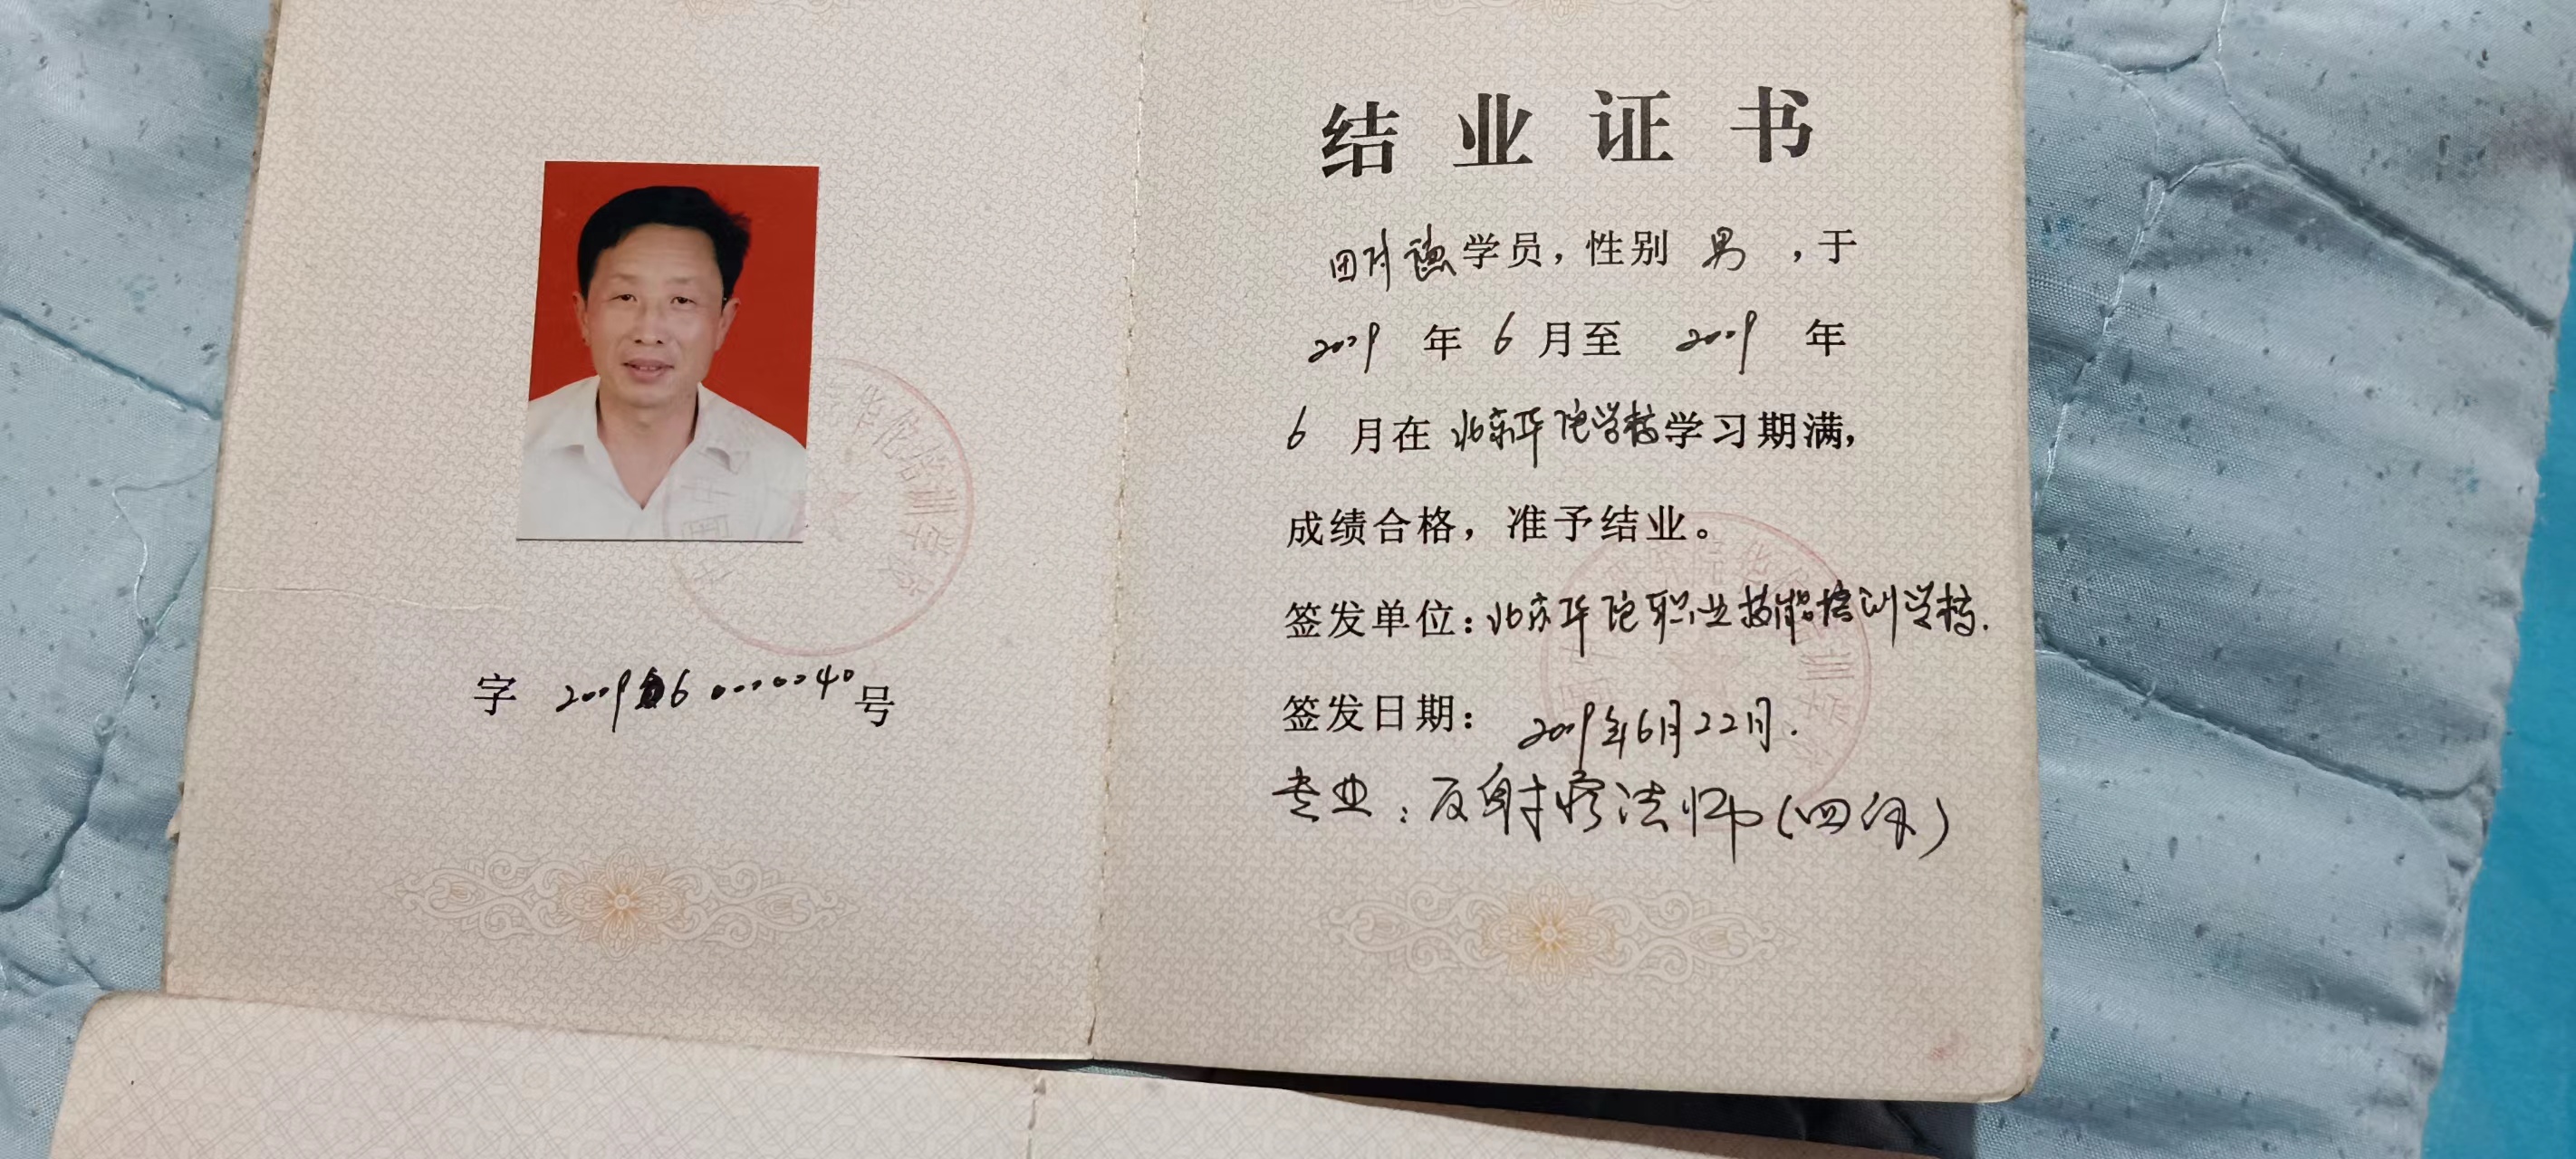 字 2009 6 0000040 号
结业证书
田 德学员，性别 男 ，于
2009 年 6 月至 2009 年
6 月在 北京华佗学校学习期满，
成绩合格，准予结业。
签发单位：北京华佗职业技能培训学校.
签发日期： 2009年6月22日.
专业：反射疗法师（四级）
华佗培训学校